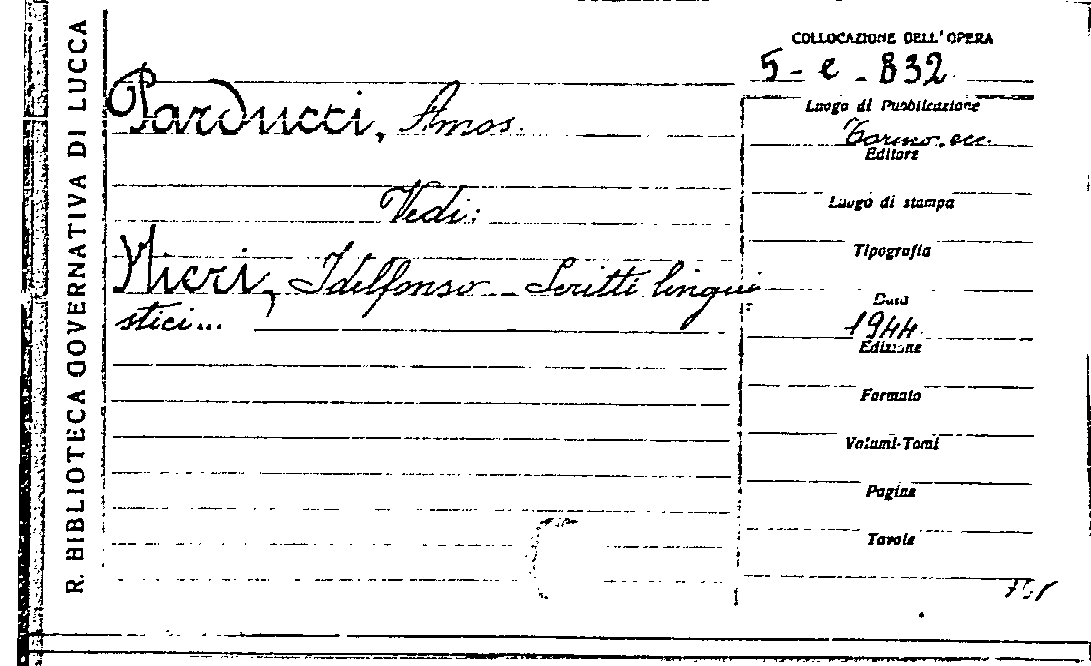 R. BIBLIOTECA GOVERNATIVA DI LUCCA
COLLOCAZIONE DELL'OPERA
5-e-832
Parducci, Amos.
Vedi:
Nieri, Idelfonso - Scritti lingui
stici...
Luogo di Pubblicazione
Torino, ecc.
Editore
Luogo di stampa
Tipografia
Data
1944
Edizione
Formato
Volumi-Tomi
Pagine
Tavole